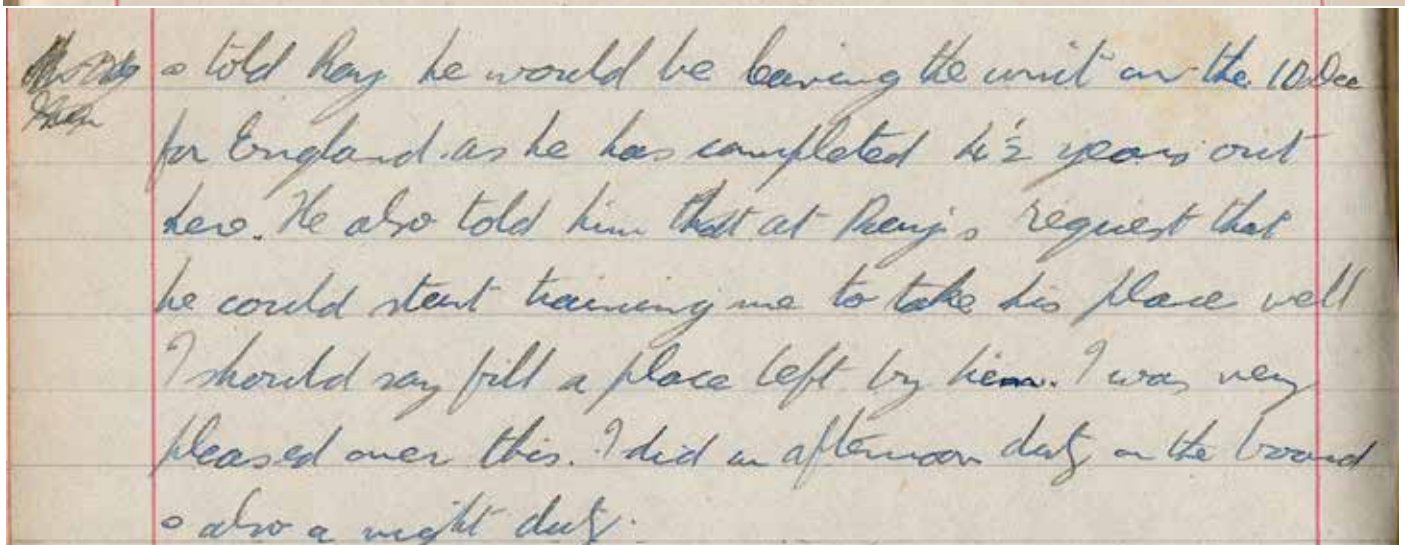 & told Reg he would be leaving the unit on the 10 Dec
for England. as he has completed 4½ years out
here. He also told him that at Reg's request that
he could start training me to take his place well
I should say fill a place left by him. I was very
pleased over this. I did an afternoon duty on the board
& also a night duty.